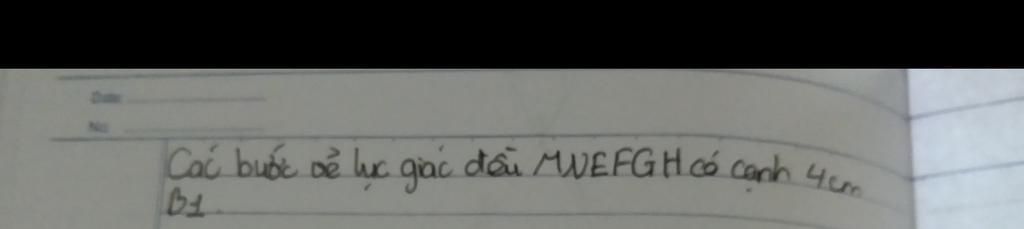 Date
No.
Các bước vẽ lục giác đều MNEFGH có cạnh 4cm
B1